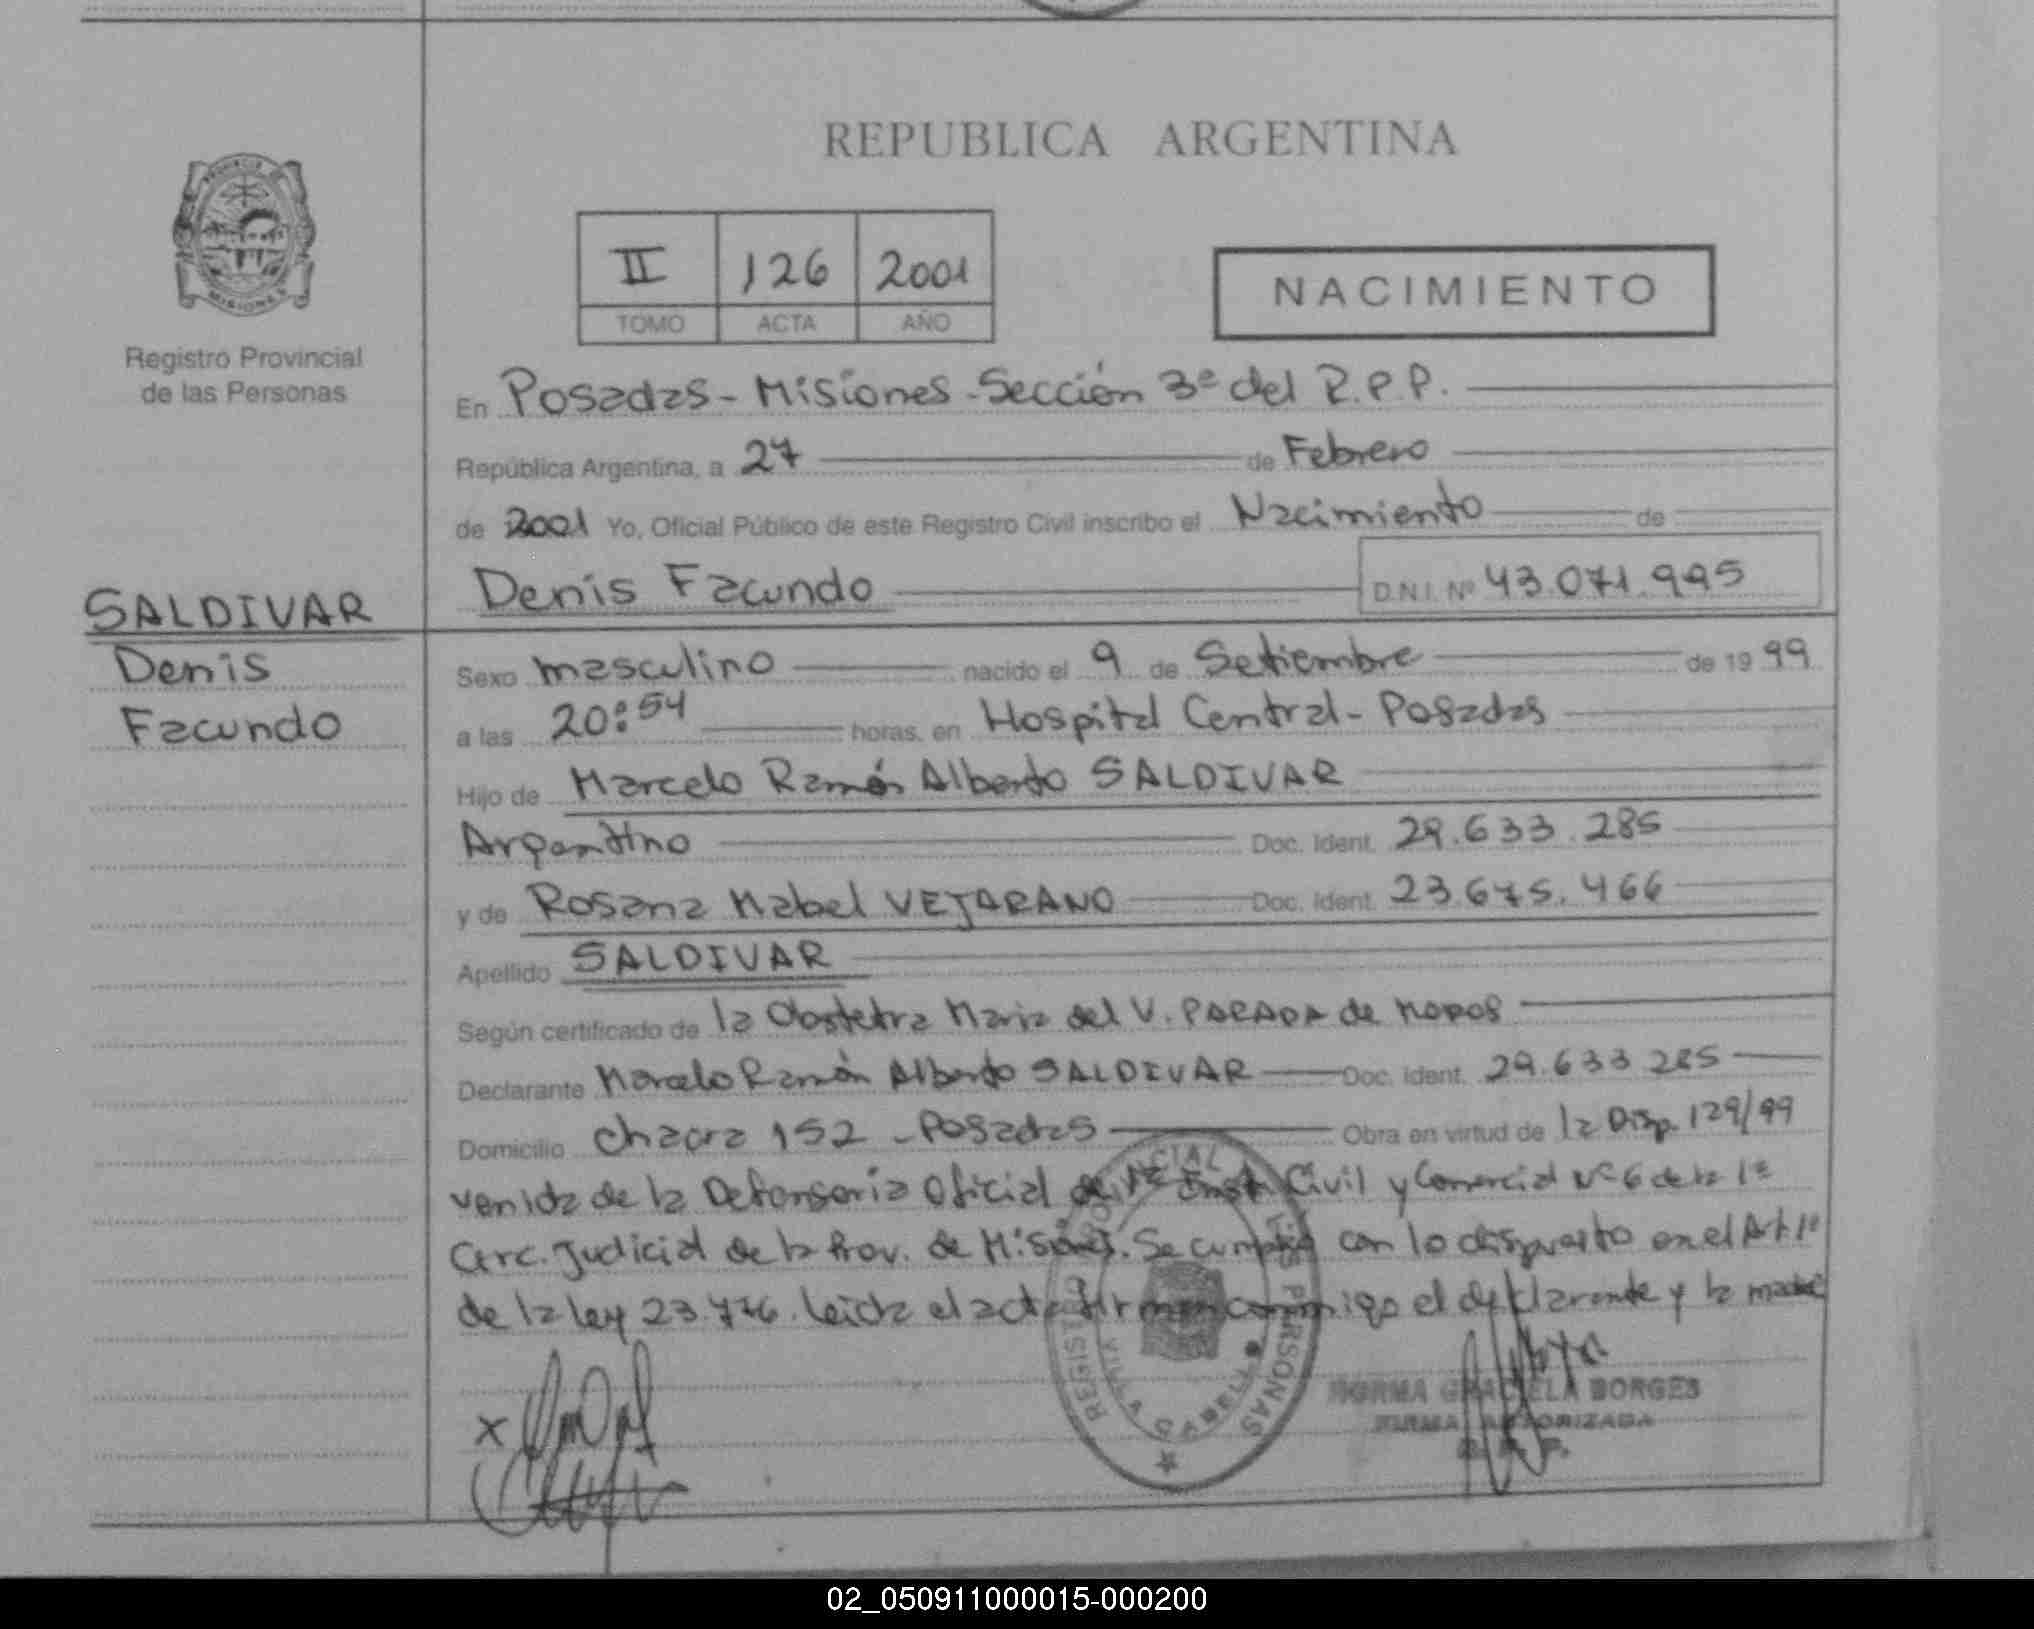 REPUBLICA ARGENTINA
PROVINCIA DE
MISIONES
Registro Provincial
de las Personas
II 126 2001
TOMO ACTA AÑO
NACIMIENTO
En Posadas - Misiones - Sección 3ª del R.P.P.
República Argentina, a 27 de Febrero
de 2001 Yo, Oficial Público de este Registro Civil inscribo el Nacimiento de
Denis Facundo D.N.I. Nº 43.071.995
SALDIVAR
Denis
Facundo
Sexo masculino nacido el 9 de Setiembre de 1999
a las 20:54 horas, en Hospital Central - Posadas
Hijo de Marcelo Ramón Alberto SALDIVAR
Argentino Doc. Ident. 29.633.285
y de Rosana Mabel VEJARANO Doc. Ident. 23.675.466
Apellido SALDIVAR
Según certificado de la Obstetra Maria del V. PARADA de MOROS
Declarante Marcelo Ramón Alberto SALDIVAR Doc. Ident. 29.633 285
Domicilio Chacra 152 - Posadas Obra en virtud de la Disp. 129/99
venida de la Defensoria Oficial de 1ª Inst. Civil y Comercial Nº 6 de la 1ª
Circ. Judicial de la Prov. de Misiones. Se cumplió con lo dispuesto en el Art. 1º
de la ley 23.776. Leida el acta firman conmigo el declarante y la madre
REGISTRO PROVINCIAL DE LAS PERSONAS
VILLA CABELLO
NORMA GRACIELA BORGES
FIRMA AUTORIZADA
R. P. P.
02_050911000015-000200